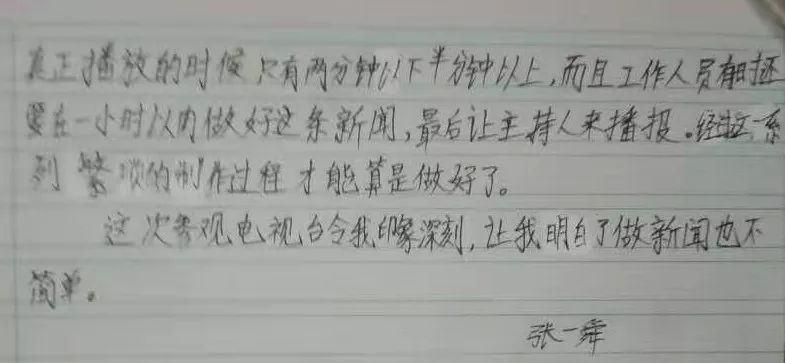 真正播放的时候只有两分钟以下半分钟以上,而且工作人员有时还
要在一小时以内做好这条新闻,最后让主持人来播报。经过这一系
列繁琐的制作过程才能算是做好了。
这次参观电视台令我印象深刻,让我明白了做新闻也不
简单。
张一舜